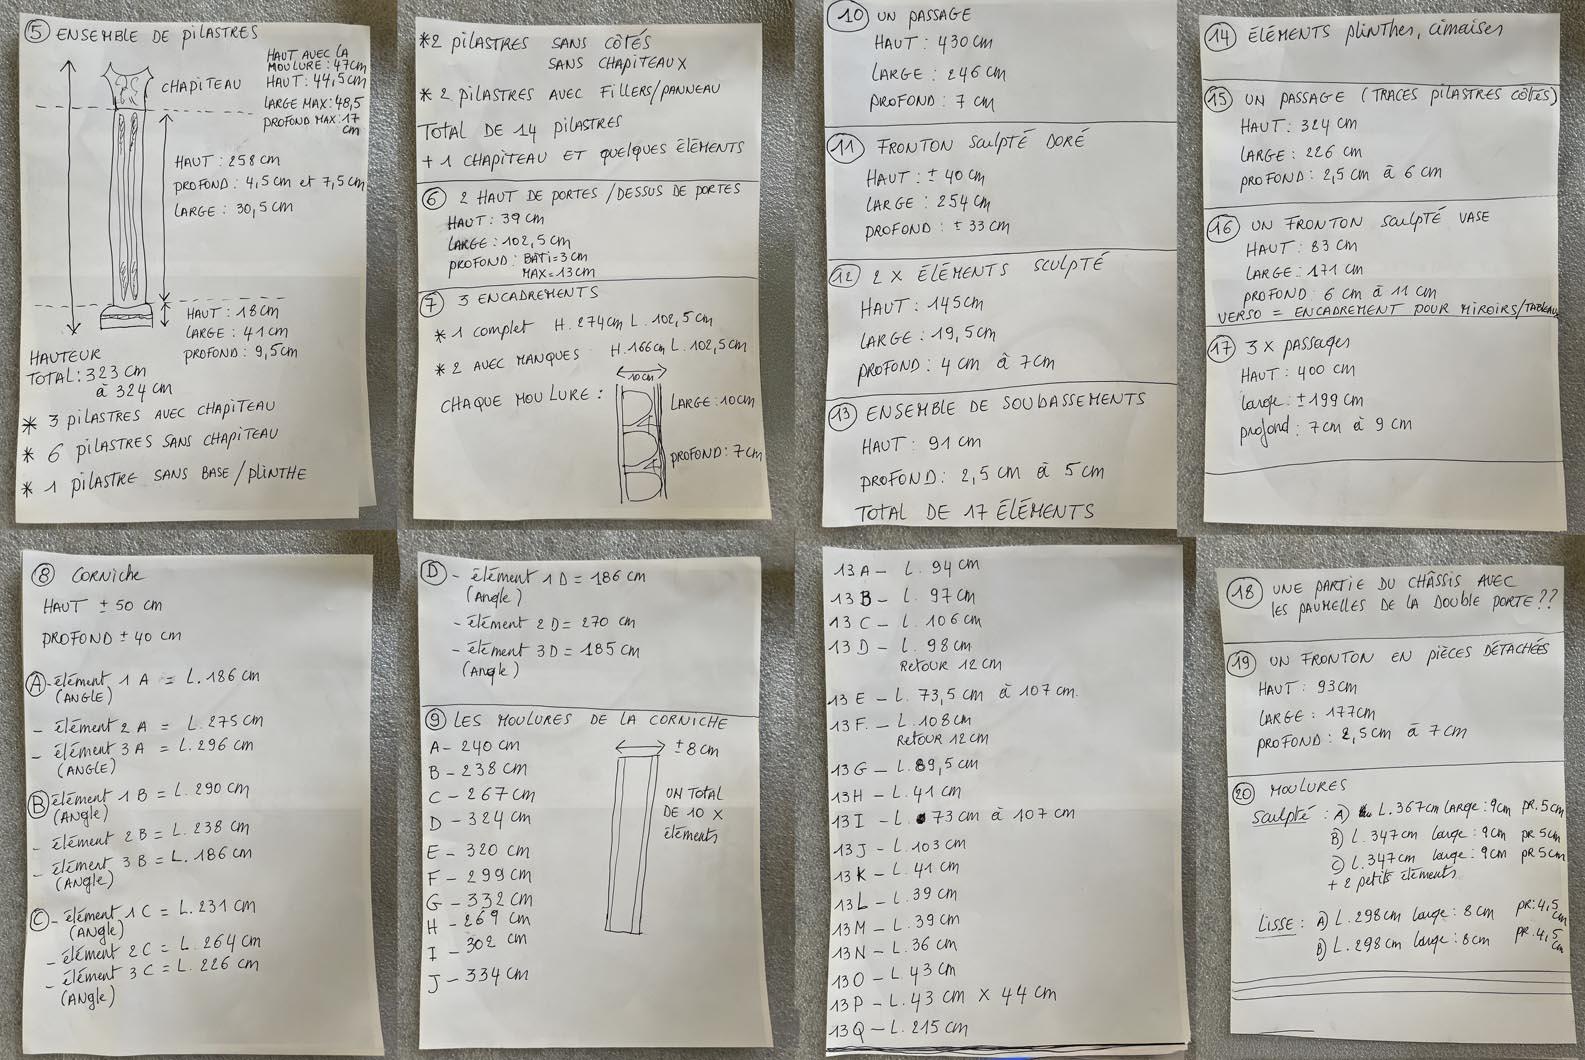 ⑤ ENSEMBLE DE PILASTRES
HAUT AVEC LA
MOULURE : 47cm
CHAPITEAU
HAUT : 44,5cm
LARGE MAX : 48,5
PROFOND MAX : 17
cm
HAUT : 258 cm
PROFOND : 4,5 cm et 7,5 cm
LARGE : 30,5 cm
HAUT : 18 cm
LARGE : 41 cm
PROFOND : 9,5cm
HAUTEUR
TOTAL : 323 cm
à 324 cm
* 3 PILASTRES AVEC CHAPITEAU
* 6 PILASTRES SANS CHAPITEAU
* 1 PILASTRE SANS BASE / PLINTHE
*2 PILASTRES SANS CÔTÉS
SANS CHAPITEAUX
* 2 PILASTRES AVEC FILLERS/PANNEAU
TOTAL DE 14 PILASTRES
+ 1 CHAPITEAU ET QUELQUES ÉLÉMENTS
⑥ 2 HAUT DE PORTES / DESSUS DE PORTES
HAUT : 39 cm
LARGE : 102,5 cm
PROFOND : BÂTI = 3 cm
MAX = 13cm
⑦ 3 ENCADREMENTS
* 1 complet H. 274cm L. 102,5 cm
* 2 AVEC MANQUES H. 166cm L. 102,5cm
10cm
CHAQUE MOULURE :
LARGE : 10cm
PROFOND : 7 cm
⑩ UN PASSAGE
HAUT : 430 cm
LARGE : 246 cm
PROFOND : 7 cm
⑪ FRONTON SCULPTÉ DORÉ
HAUT : ± 40 cm
LARGE : 254 cm
PROFOND : ± 33 cm
⑫ 2 X ÉLÉMENTS SCULPTÉ
HAUT : 145cm
LARGE : 19,5 cm
PROFOND : 4 cm à 7cm
⑬ ENSEMBLE DE SOUBASSEMENTS
HAUT : 91 cm
PROFOND : 2,5 cm à 5 cm
TOTAL DE 17 ÉLÉMENTS
⑭ ÉLÉMENTS plinthes, cimaises
⑮ UN PASSAGE (TRACES PILASTRES CÔTÉS)
HAUT : 324 cm
LARGE : 226 cm
PROFOND : 2,5 cm à 6 cm
⑯ UN FRONTON SCULPTÉ VASE
HAUT : 83 cm
LARGE : 171 cm
PROFOND : 6 cm à 11 cm
VERSO = ENCADREMENT POUR MIROIRS/TABLEAU
⑰ 3 X passages
HAUT : 400 cm
large : ± 199 cm
profond : 7cm à 9 cm
⑧ CORNICHE
HAUT ± 50 cm
PROFOND ± 40 cm
Ⓐ - élément 1 A = L. 186 cm
(ANGLE)
- élément 2 A = L. 275 cm
- élément 3 A = L. 296 cm
(ANGLE)
Ⓑ élément 1 B = L. 290 cm
(Angle)
- élément 2 B = L. 238 cm
- élément 3 B = L. 186 cm
(Angle)
Ⓒ - élément 1 C = L. 231 cm
(Angle)
- élément 2 C = L. 264 cm
- élément 3 C = L. 226 cm
(Angle)
Ⓓ - élément 1 D = 186 cm
(Angle)
- élément 2 D = 270 cm
- élément 3 D = 185 cm
(Angle)
⑨ LES MOULURES DE LA CORNICHE
A - 240 cm
B - 238 cm
C - 267 cm
D - 324 cm
E - 320 cm
F - 299 cm
G - 332 cm
H - 269 cm
I - 302 cm
J - 334 cm
± 8 cm
UN TOTAL
DE 10 X
éléments
13 A - L. 94 cm
13 B - L. 97 cm
13 C - L. 106 cm
13 D - L. 98 cm
RETOUR 12 cm
13 E - L. 73,5 cm à 107 cm.
13 F - L. 108 cm
RETOUR 12 cm
13 G - L. 89,5 cm
13 H - L. 41 cm
13 I - L. 73 cm à 107 cm
13 J - L. 103 cm
13 K - L. 41 cm
13 L - L. 39 cm
13 M - L. 39 cm
13 N - L. 36 cm
13 O - L. 43 cm
13 P - L. 43 cm X 44 cm
13 Q - L. 215 cm
⑱ UNE PARTIE DU CHÂSSIS AVEC
LES PAUMELLES DE LA DOUBLE PORTE ??
⑲ UN FRONTON EN PIÈCES DÉTACHÉES
HAUT : 93cm
LARGE : 177cm
PROFOND : 2,5cm à 7 cm
⑳ MOULURES
Sculpté : A) L. 367 cm Large : 9cm PR. 5cm
B) L. 347 cm large : 9cm PR 5cm
C) L. 347 cm large : 9cm PR 5cm
+ 2 petits éléments
LISSE : A) L. 298 cm large : 8 cm PR : 4,5 cm
B) L. 298 cm large : 8cm PR. 4,5 cm